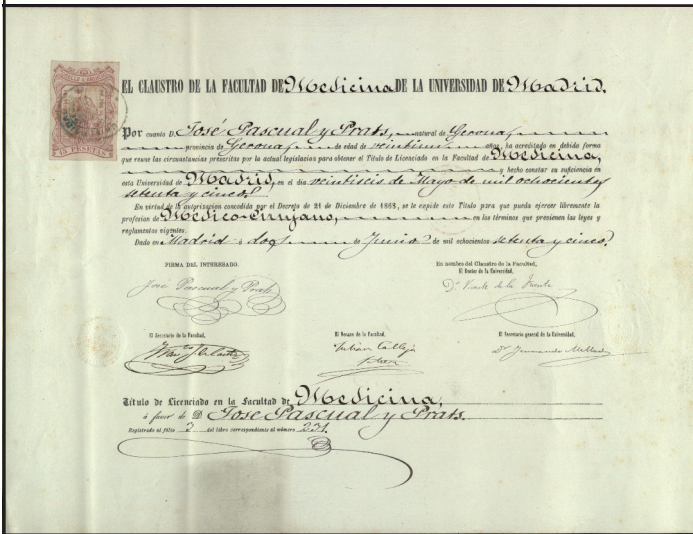 EL CLAUSTRO DE LA FACULTAD DE Medicina DE LA UNIVERSIDAD DE Madrid.
Por cuanto D. José Pascual y Prats, natural de Gerona,
provincia de Gerona, de edad de veintiun años, ha acreditado en debida forma
que reune las circunstancias prescritas por la actual legislacion para obtener el Título de Licenciado en la Facultad de Medicina,
y hecho constar su suficiencia en
esta Universidad de Madrid, en el dia veintiseis de Mayo de mil ochocientos
setenta y cinco.
En virtud de la autorizacion concedida por el Decreto de 21 de Diciembre de 1868, se le expide este Título para que pueda ejercer libremente la
profesion de Médico-Cirujano, en los términos que previenen las leyes y
reglamentos vigentes.
Dado en Madrid á dos de Junio de mil ochocientos setenta y cinco.
FIRMA DEL INTERESADO.
José Pascual y Prats
En nombre del Claustro de la Facultad,
El Rector de la Universidad,
Dr. Vicente de la Fuente
El Secretario de la Facultad,
El Decano de la Facultad,
Julian Calleja
El Secretario general de la Universidad,
Dr. Fernando Mellado
Título de Licenciado en la Facultad de Medicina,
á favor de D José Pascual y Prats.
Registrado al fólio 3 del libro correspondiente al número 231.
PESETAS